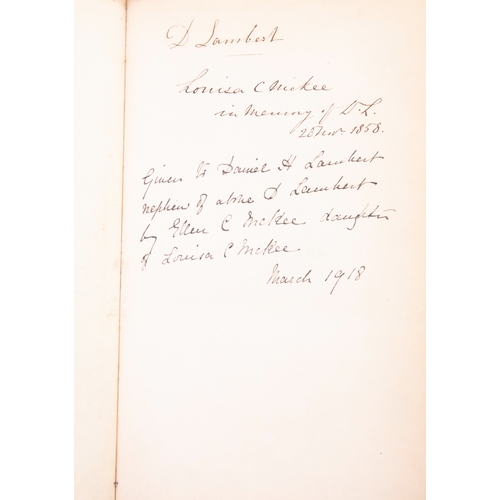 D Lambert
Louisa C McKee
in Memory of D. L.
2d Nov 1858.
Given to Daniel H Lambert
nephew of above D Lambert
by Ellen C McKee daughter
of Louisa C McKee
March 1918